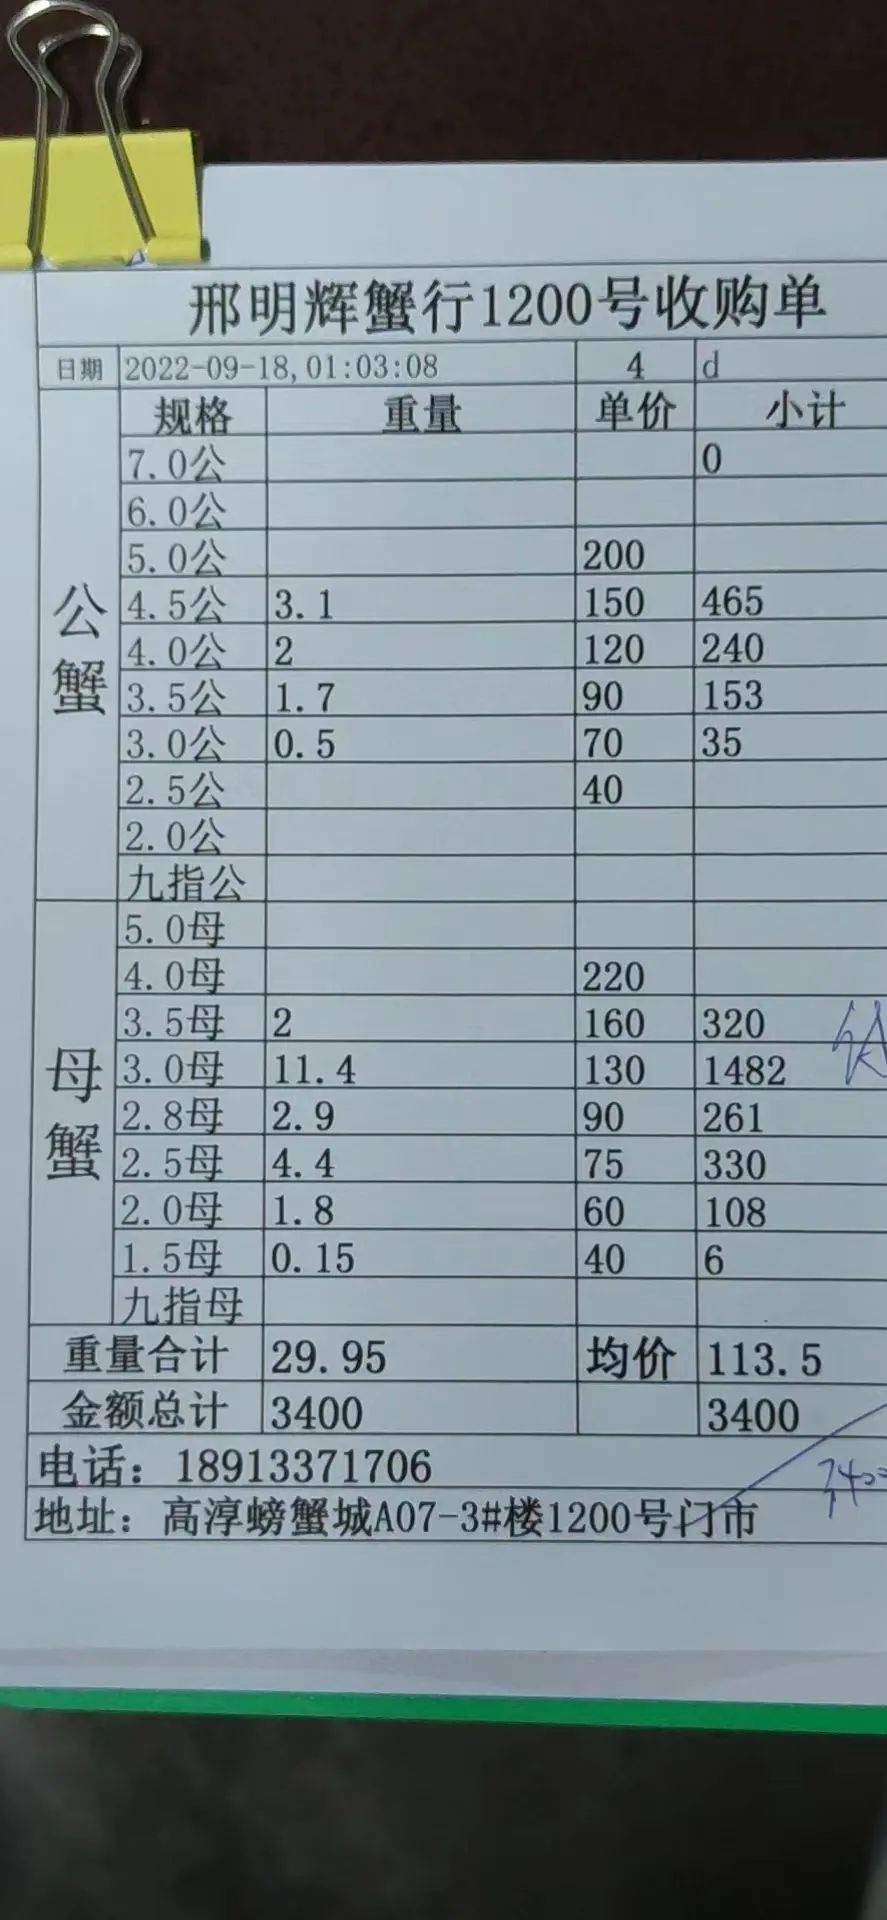 邢明辉蟹行1200号收购单
日期 2022-09-18,01:03:08 4 d
规格 重量 单价 小计
公蟹
7.0公 0
6.0公
5.0公 200
4.5公 3.1 150 465
4.0公 2 120 240
3.5公 1.7 90 153
3.0公 0.5 70 35
2.5公 40
2.0公
九指公
母蟹
5.0母
4.0母 220
3.5母 2 160 320
3.0母 11.4 130 1482
2.8母 2.9 90 261
2.5母 4.4 75 330
2.0母 1.8 60 108
1.5母 0.15 40 6
九指母
重量合计 29.95 均价 113.5
金额总计 3400 3400
电话：18913371706
地址：高淳螃蟹城A07-3#楼1200号门市